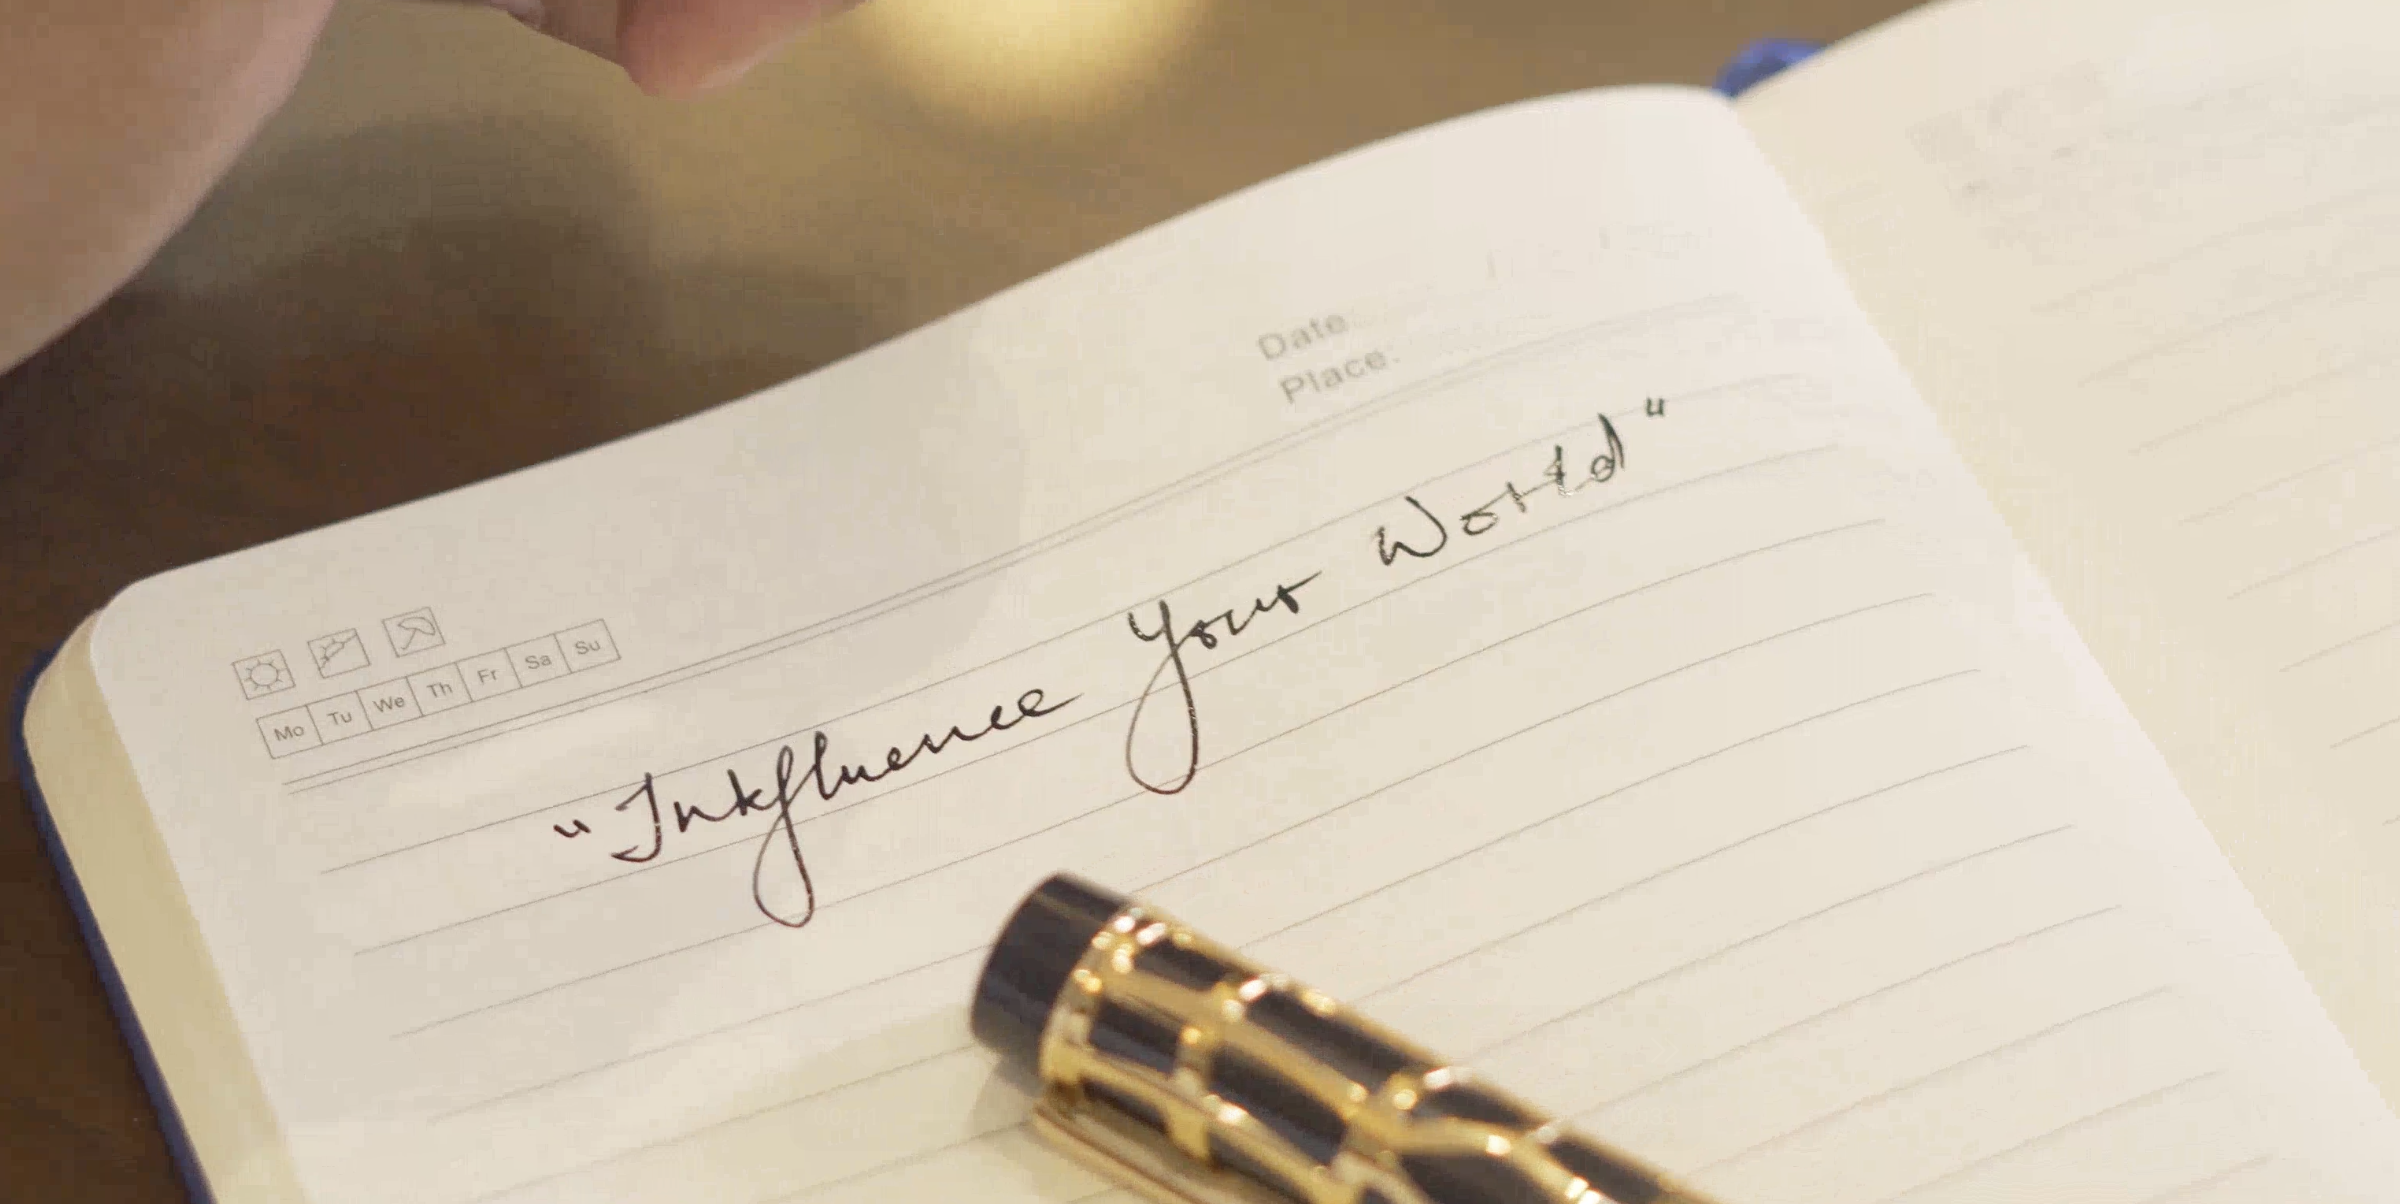 Date
Place:
Mo Tu We Th Fr Sa Su
"Inkfluence Your World"